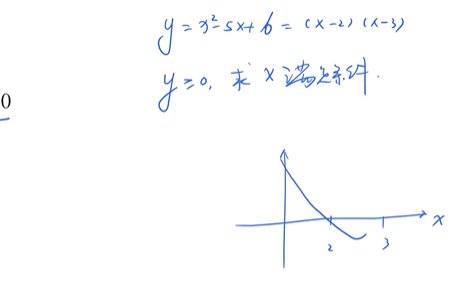 y = x²-5x+6 = (x-2)(x-3)
0
y≥0, 求 x 满足条件.
x
2
3